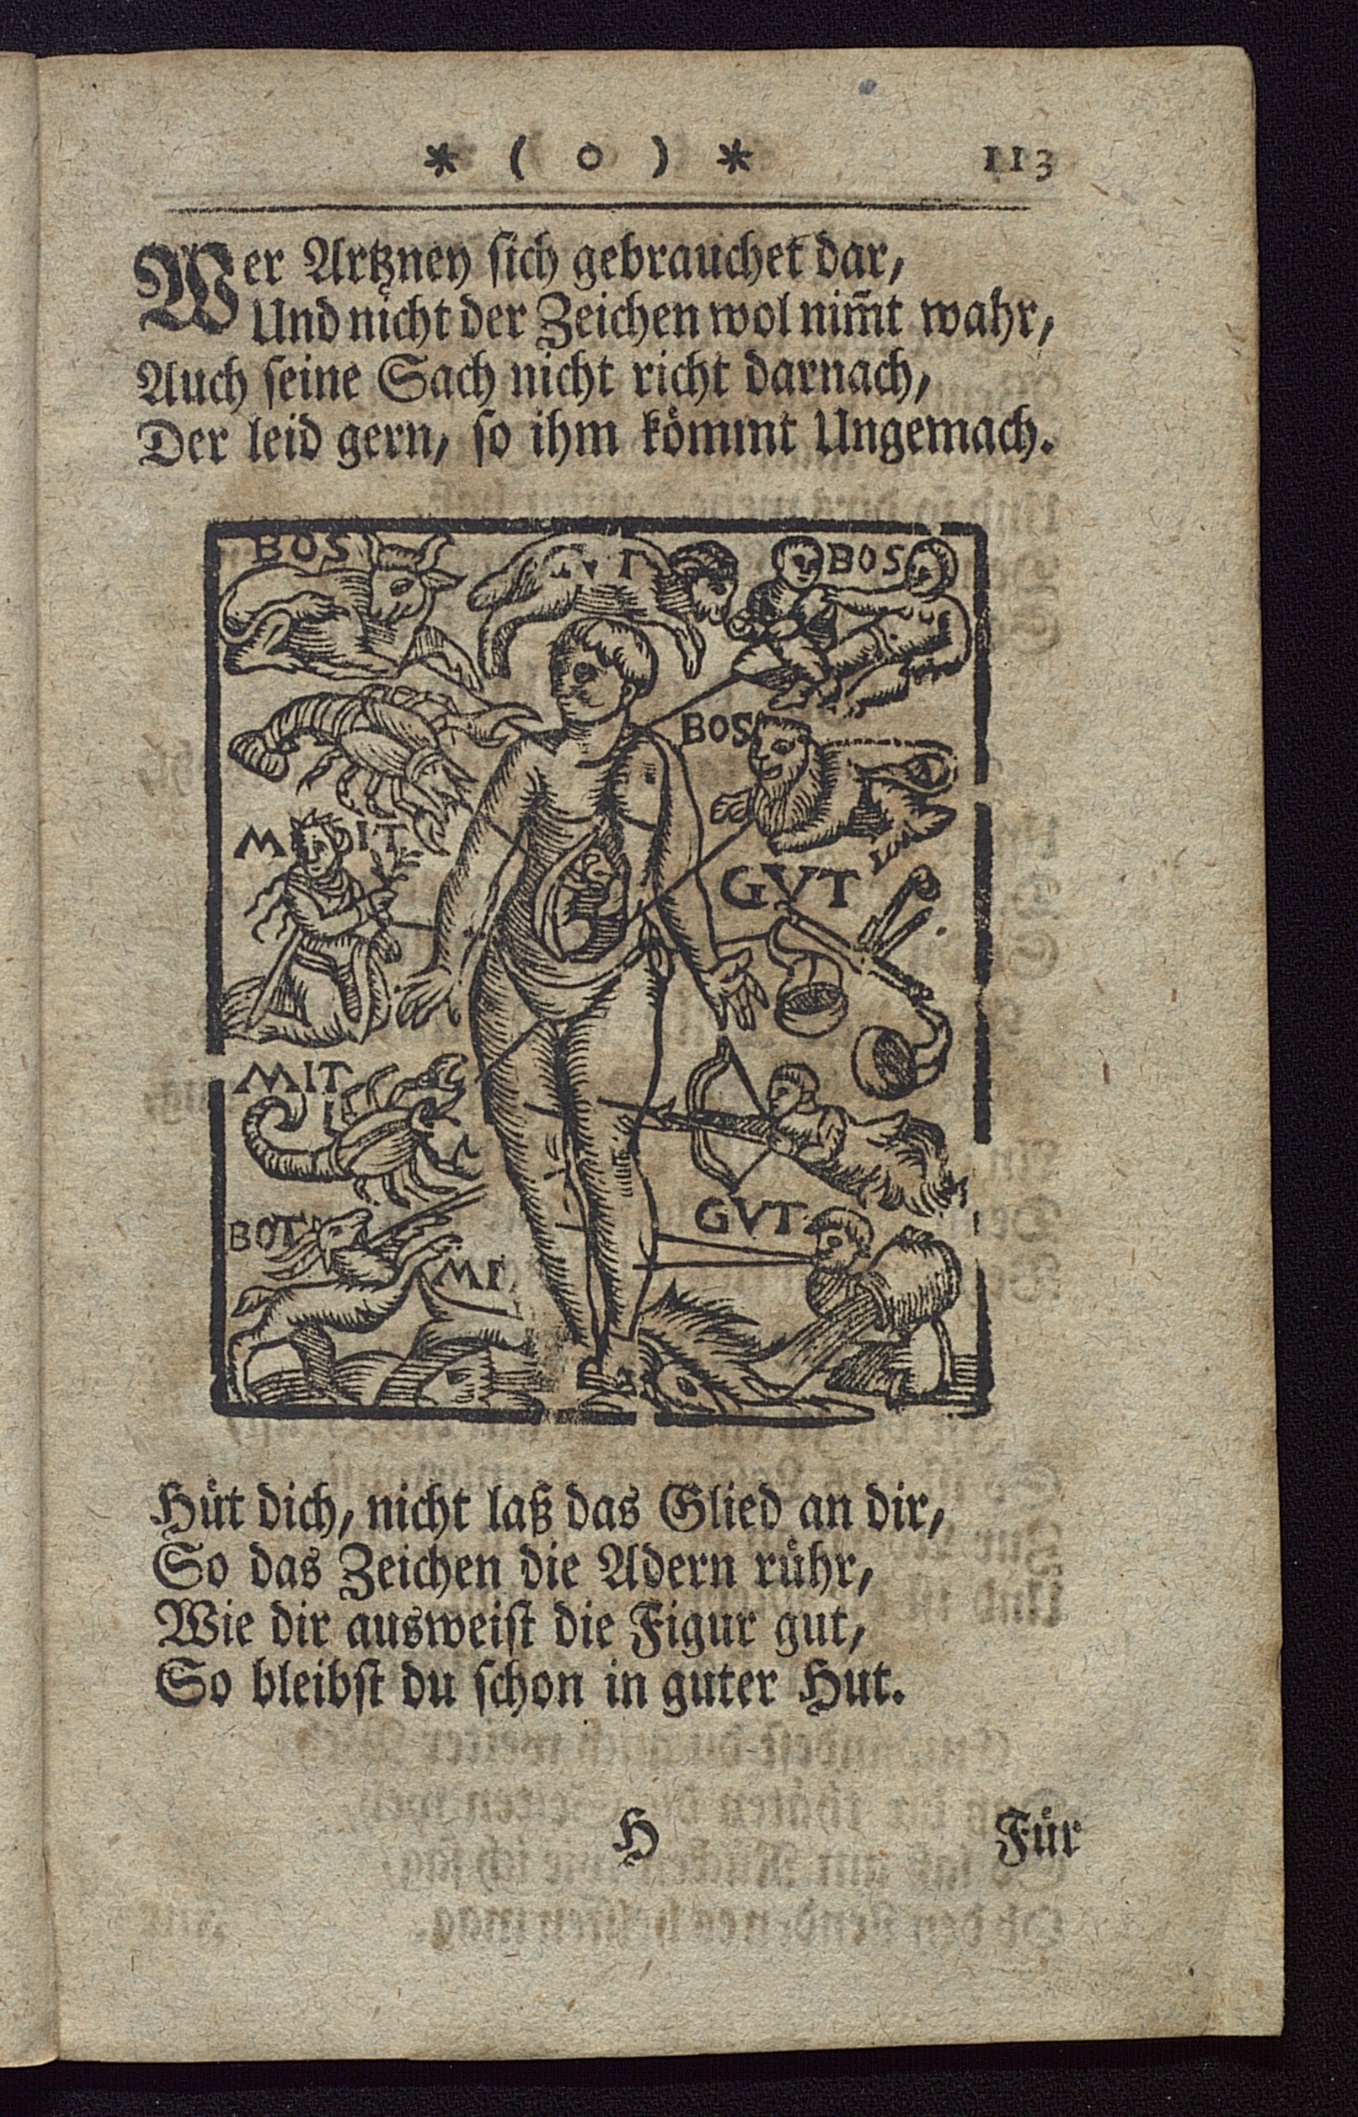 * ( o ) * 113
Wer Artzney sich gebrauchet dar,
Und nicht der Zeichen wol nim̄t wahr,
Auch seine Sach nicht richt darnach,
Der leid gern, so ihm kömmt Ungemach.
BOS GVT BOS
BOS
MIT
GVT
MIT
GVT
BOT
MI
Hüt dich, nicht laß das Glied an dir,
So das Zeichen die Adern rühr,
Wie dir ausweist die Figur gut,
So bleibst du schon in guter Hut.
H Für